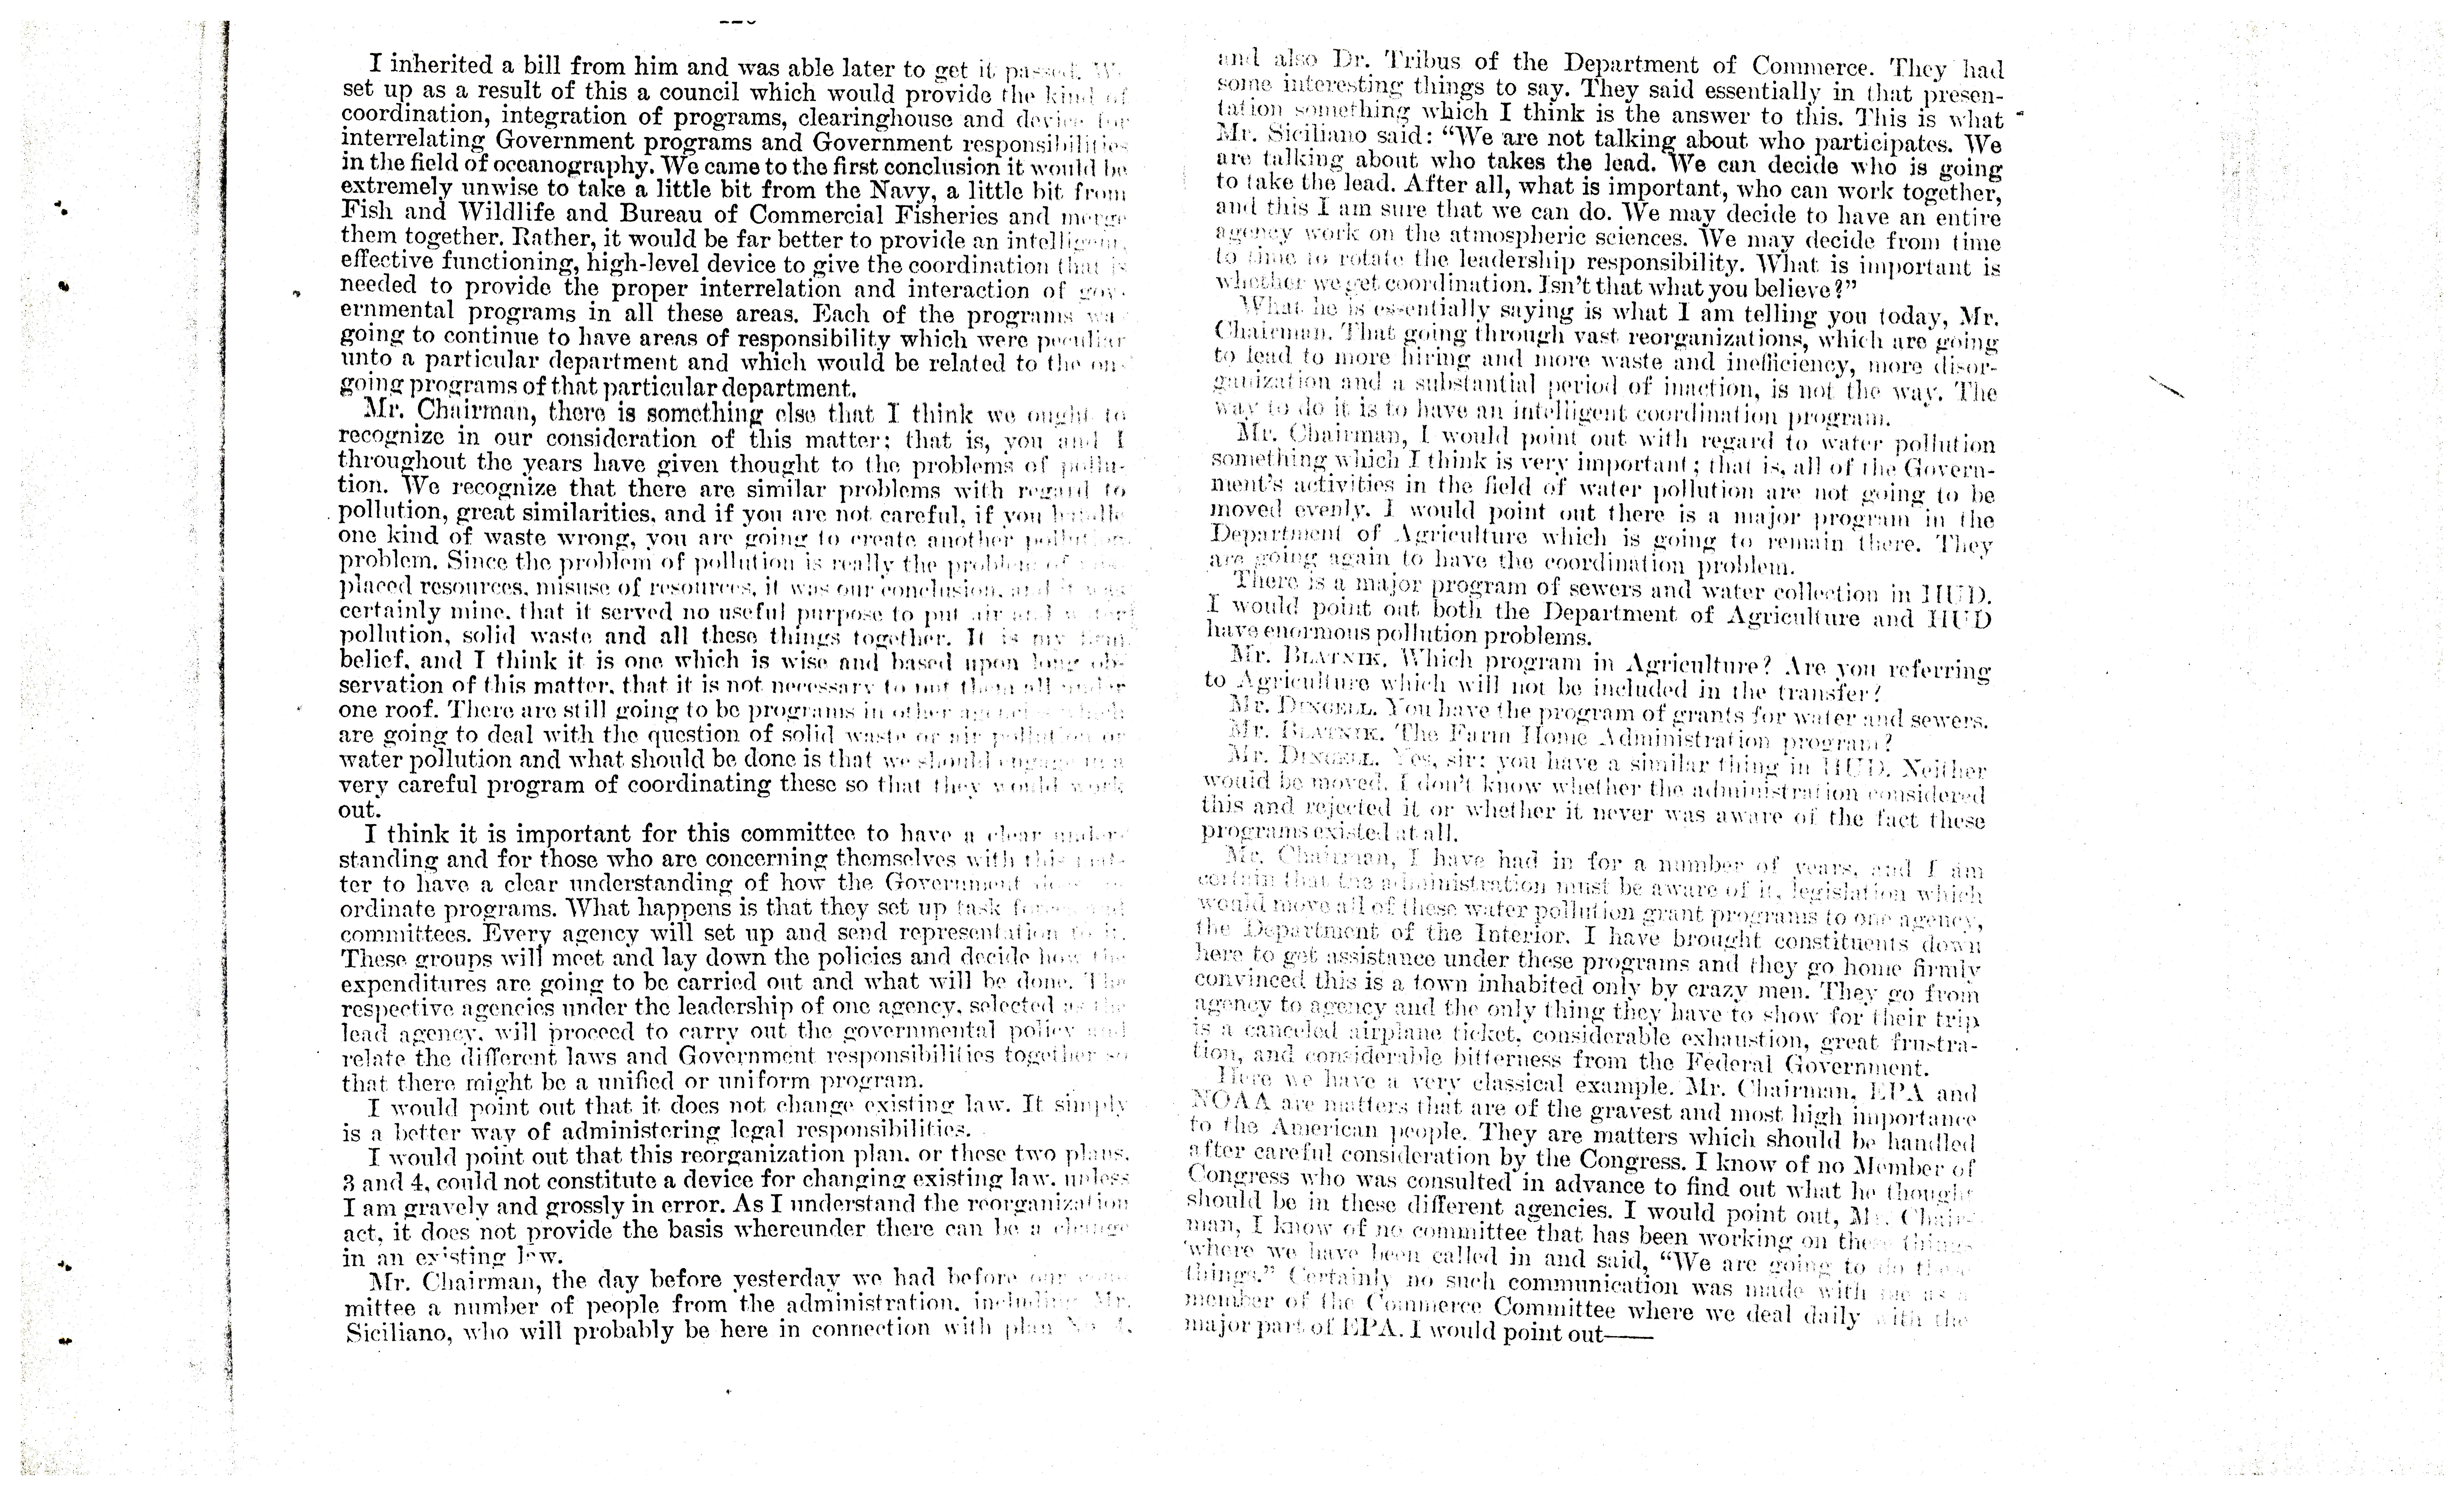 I inherited a bill from him and was able later to get it passed. We
set up as a result of this a council which would provide the kind of
coordination, integration of programs, clearinghouse and device for
interrelating Government programs and Government responsibilities
in the field of oceanography. We came to the first conclusion it would be
extremely unwise to take a little bit from the Navy, a little bit from
Fish and Wildlife and Bureau of Commercial Fisheries and merge
them together. Rather, it would be far better to provide an intelligent,
effective functioning, high-level device to give the coordination that is
needed to provide the proper interrelation and interaction of gov-
ernmental programs in all these areas. Each of the programs
going to continue to have areas of responsibility which were peculiar
unto a particular department and which would be related to the on-
going programs of that particular department.
Mr. Chairman, there is something else that I think we ought to
recognize in our consideration of this matter; that is, you and I
throughout the years have given thought to the problems of pollu-
tion. We recognize that there are similar problems with regard to
pollution, great similarities, and if you are not careful, if you handle
one kind of waste wrong, you are going to create another pollution
problem. Since the problem of pollution is really the problem of
placed resources, misuse of resources, it was our conclusion, and it was
certainly mine, that it served no useful purpose to put air and water
pollution, solid waste and all these things together. It is my firm
belief, and I think it is one which is wise and based upon long ob-
servation of this matter, that it is not necessary to put them all under
one roof. There are still going to be programs in other agencies which
are going to deal with the question of solid waste or air pollution or
water pollution and what should be done is that we should engage in a
very careful program of coordinating these so that they would work
out.
I think it is important for this committee to have a clear under-
standing and for those who are concerning themselves with this mat-
ter to have a clear understanding of how the Government
ordinate programs. What happens is that they set up task forces and
committees. Every agency will set up and send representation to it.
These groups will meet and lay down the policies and decide how the
expenditures are going to be carried out and what will be done. The
respective agencies under the leadership of one agency, selected as the
lead agency, will proceed to carry out the governmental policy and
relate the different laws and Government responsibilities together so
that there might be a unified or uniform program.
I would point out that it does not change existing law. It simply
is a better way of administering legal responsibilities.
I would point out that this reorganization plan, or these two plans,
3 and 4, could not constitute a device for changing existing law, unless
I am gravely and grossly in error. As I understand the reorganization
act, it does not provide the basis whereunder there can be a change
in an existing law.
Mr. Chairman, the day before yesterday we had before our com-
mittee a number of people from the administration, including Mr.
Siciliano, who will probably be here in connection with plan No. 4,
and also Dr. Tribus of the Department of Commerce. They had
some interesting things to say. They said essentially in that presen-
tation something which I think is the answer to this. This is what
Mr. Siciliano said: “We are not talking about who participates. We
are talking about who takes the lead. We can decide who is going
to take the lead. After all, what is important, who can work together,
and this I am sure that we can do. We may decide to have an entire
agency work on the atmospheric sciences. We may decide from time
to time to rotate the leadership responsibility. What is important is
whether we get coordination. Isn't that what you believe?”
What he is essentially saying is what I am telling you today, Mr.
Chairman. That going through vast reorganizations, which are going
to lead to more hiring and more waste and inefficiency, more disor-
ganization and a substantial period of inaction, is not the way. The
way to do it is to have an intelligent coordination program.
Mr. Chairman, I would point out with regard to water pollution
something which I think is very important; that is, all of the Govern-
ment's activities in the field of water pollution are not going to be
moved evenly. I would point out there is a major program in the
Department of Agriculture which is going to remain there. They
are going again to have the coordination problem.
There is a major program of sewers and water collection in HUD.
I would point out both the Department of Agriculture and HUD
have enormous pollution problems.
Mr. BLATNIK. Which program in Agriculture? Are you referring
to Agriculture which will not be included in the transfer?
Mr. DINGELL. You have the program of grants for water and sewers.
Mr. BLATNIK. The Farm Home Administration program?
Mr. DINGELL. Yes, sir; you have a similar thing in HUD. Neither
would be moved. I don't know whether the administration considered
this and rejected it or whether it never was aware of the fact these
programs existed at all.
Mr. Chairman, I have had in for a number of years, and I am
certain that the administration must be aware of it, legislation which
would move all of these water pollution grant programs to one agency,
the Department of the Interior. I have brought constituents down
here to get assistance under these programs and they go home firmly
convinced this is a town inhabited only by crazy men. They go from
agency to agency and the only thing they have to show for their trip
is a canceled airplane ticket, considerable exhaustion, great frustra-
tion, and considerable bitterness from the Federal Government.
Here we have a very classical example. Mr. Chairman, EPA and
NOAA are matters that are of the gravest and most high importance
to the American people. They are matters which should be handled
after careful consideration by the Congress. I know of no Member of
Congress who was consulted in advance to find out what he thought
should be in these different agencies. I would point out, Mr. Chair-
man, I know of no committee that has been working on these things
where we have been called in and said, “We are going to do these
things.” Certainly no such communication was made with me as a
member of the Commerce Committee where we deal daily with the
major part of EPA. I would point out——